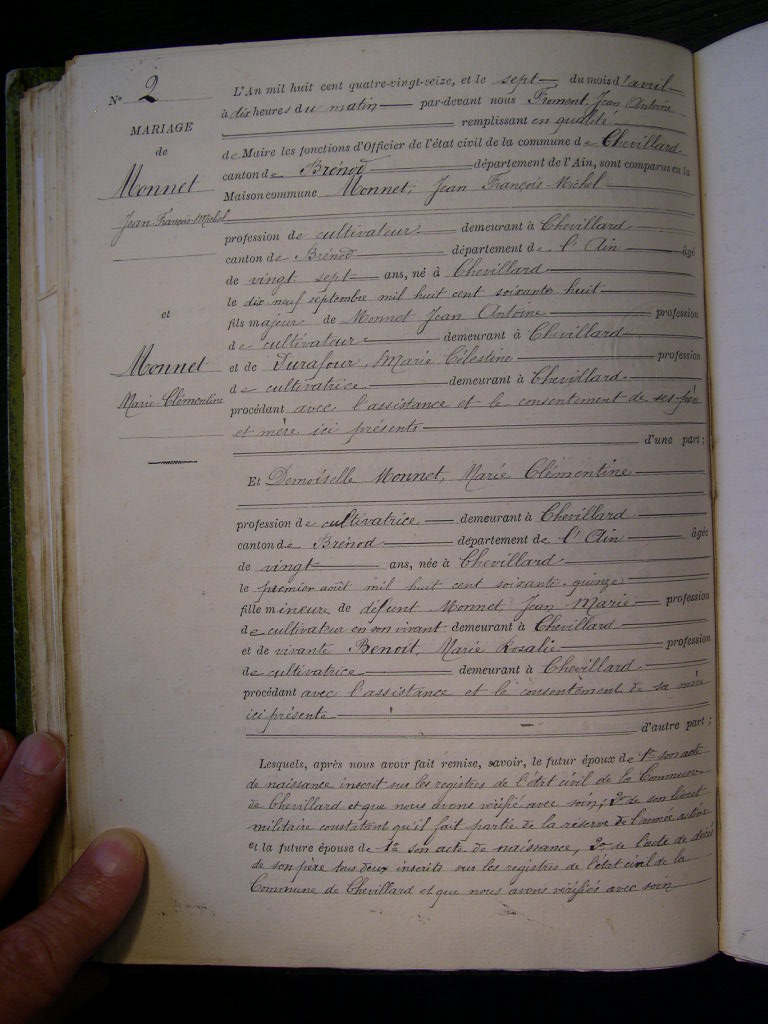 N° 2
MARIAGE
de
Monnet
Jean François Michel
et
Monnet
Marie Clémentine
L'An mil huit cent quatre-vingt-seize, et le sept du mois d'avril
à dix heures du matin par-devant nous Froment, Jean Antoine
remplissant en qualité
de Maire les fonctions d'Officier de l'état civil de la commune de Chevillard
canton de Brénod département de l'Ain, sont comparus en la
Maison commune Monnet, Jean François Michel
profession de cultivateur demeurant à Chevillard
canton de Brénod département de l'Ain âgé
de vingt sept ans, né à Chevillard
le dix neuf septembre mil huit cent soixante huit
fils majeur de Monnet Jean Antoine profession
de cultivateur demeurant à Chevillard
et de Durafour, Marie Célestine profession
de cultivatrice demeurant à Chevillard
procédant avec l'assistance et le consentement de ses père
et mère ici présents
d'une part;
Et Demoiselle Monnet, Marie Clémentine
profession de cultivatrice demeurant à Chevillard
canton de Brénod département de l'Ain âgée
de vingt ans, née à Chevillard
le premier août mil huit cent soixante-quinze
fille mineure de défunt Monnet Jean Marie profession
de cultivateur en son vivant demeurant à Chevillard
et de vivante Benoit, Marie Rosalie profession
de cultivatrice demeurant à Chevillard
procédant avec l'assistance et le consentement de sa mère
ici présente
d'autre part;
Lesquels, après nous avoir fait remise, savoir, le futur époux de 1° son acte
de naissance inscrit sur les registres de l'état civil de la Commune
de Chevillard et que nous avons vérifié avec soin; 2° de son livret
militaire constatant qu'il fait partie de la réserve de l'armée active
et la future épouse de 1° son acte de naissance, 2° de l'acte de décès
de son père tous deux inscrits sur les registres de l'état civil de la
Commune de Chevillard et que nous avons vérifiés avec soin